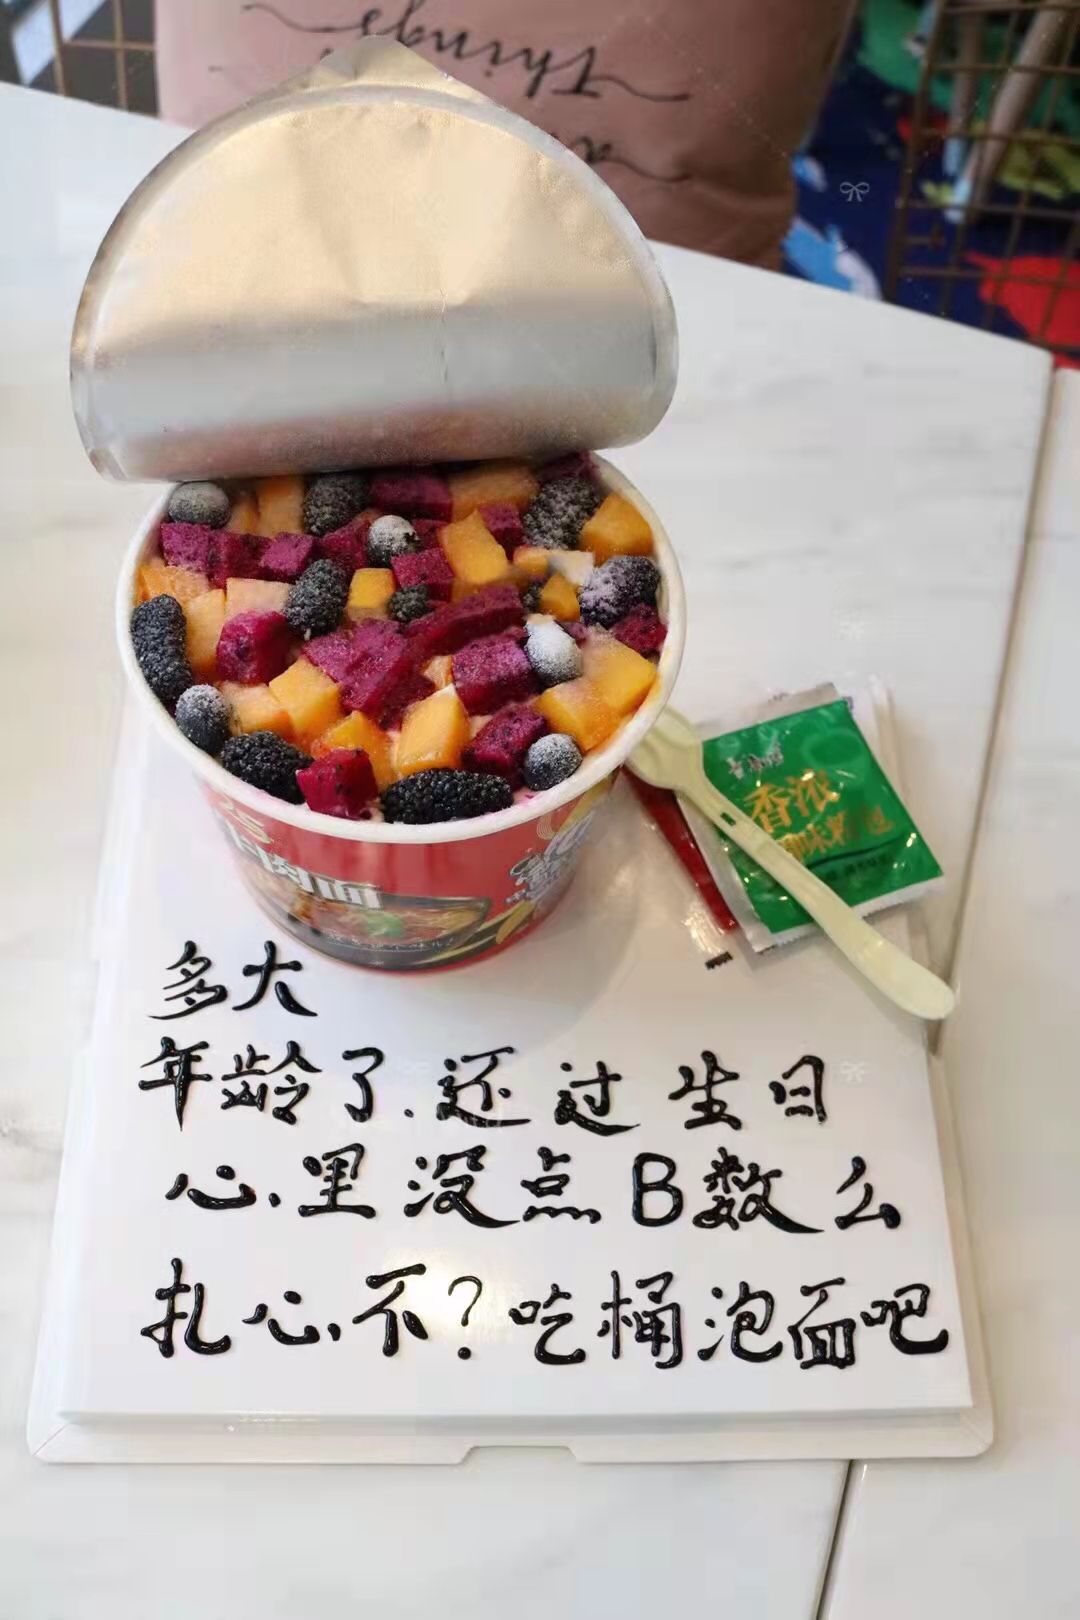 Things
香浓
多大
年龄了.还过生日
心里没点B数么
扎心不?吃桶泡面吧